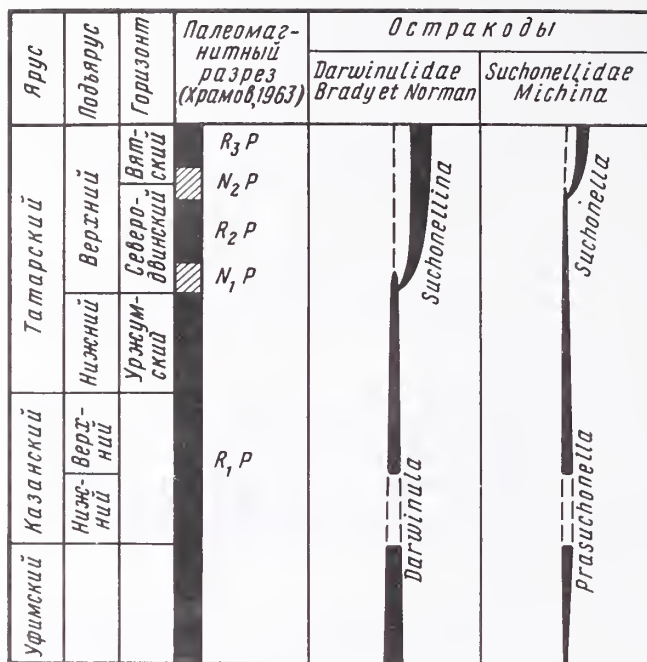 Ярус
Подъярус
Горизонт
Палеомаг-
нитный
разрез
(Храмов, 1963)
Остракоды
Darwinulidae
Brady et Norman
Suchonellidae
Michina
Татарский
Верхний
Нижний
Вят-
ский
Северо-
двинский
Уржум-
ский
Казанский
Верх-
ний
Ниж-
ний
Уфимский
R₃P
N₂P
R₂P
N₁P
R₁P
Suchonellina
Darwinula
Suchonella
Prasuchonella